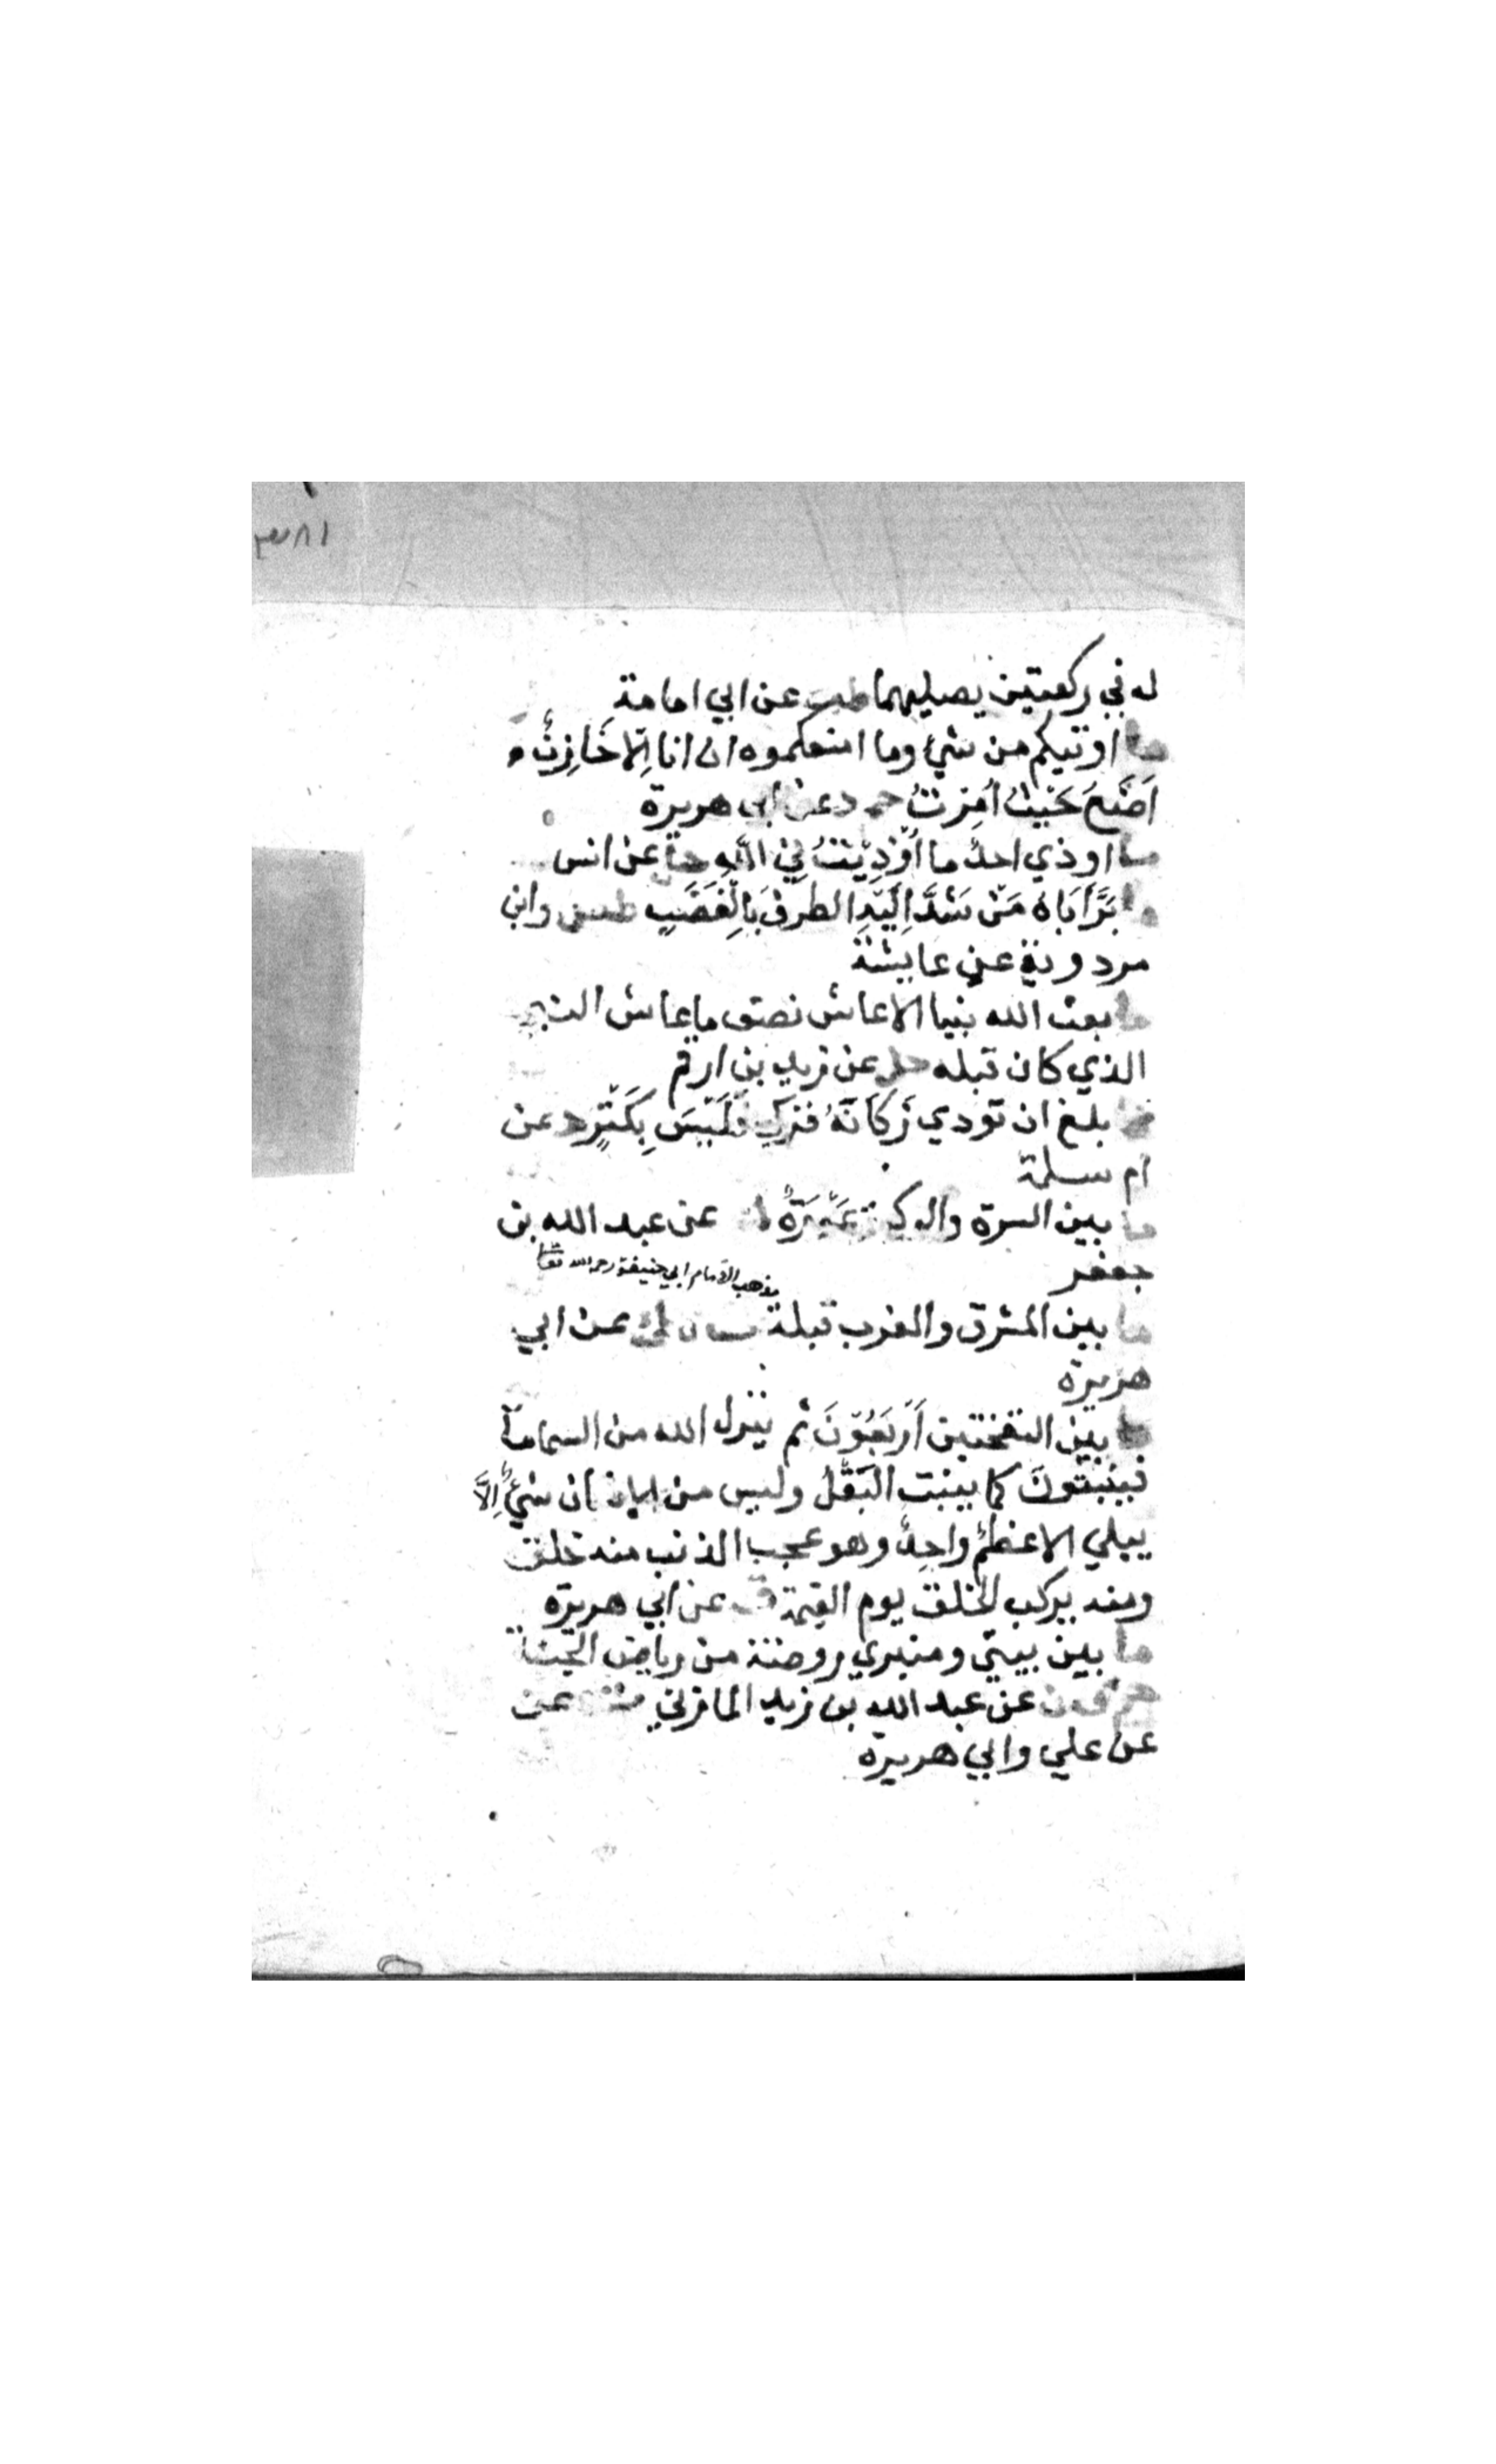 له في ركعتين يصليهما طب عن ابي امامة
ما اوتيكم من شيء وما امنعكموه ان انا اِلّا خَازِنٌ
اَضَعُ حَيْثُ اُمِرْتُ حم د عن ابى هريرة
ما اوذي احدٌ ما اُوْذِيْتُ فِيْ اللّٰهِ حل عن انس
ما بَرَّ اَبَاهُ مَنْ شَدَّ اِلَيْهِ الطرفَ بِالْغَضَبِ طس وابن
مردوية عن عايشة
ما بعث الله نبيا الا عاش نصف ما عاش النبي
الذي كان قبله حل عن زيد بن ارقم
ما بلغ ان تودي زَكَاتهُ فزكي فَلَيْسَ بِكَنْزٍ د عن
ام سلمة
ما بين السرة والركبة عَوْرَةٌ ك عن عبد الله بن
جعفر
مذهب الامام ابي حنيفة رحمه الله تعا
ما بين المشرق والمغرب قبلة ت ه ك عن ابي
هريرة
ما بين النفختين اَرْبَعُوْنَ ثم ينزل الله من السماء مآ
فينبتُونَ كما ينبت البَقْلُ وليس من الانسان شيءٌ اِلَّا
يبلي الا عظمٌ واحِدٌ وهو عجب الذنب منه خلق
ومنه يركب الخلق يوم القيمة ق عن ابي هريرة
ما بين بيتي ومنبري روضة من رياض الجنة
حم ق ن عن عبد الله بن زيد المازني ت عن
عن علي وابي هريرة